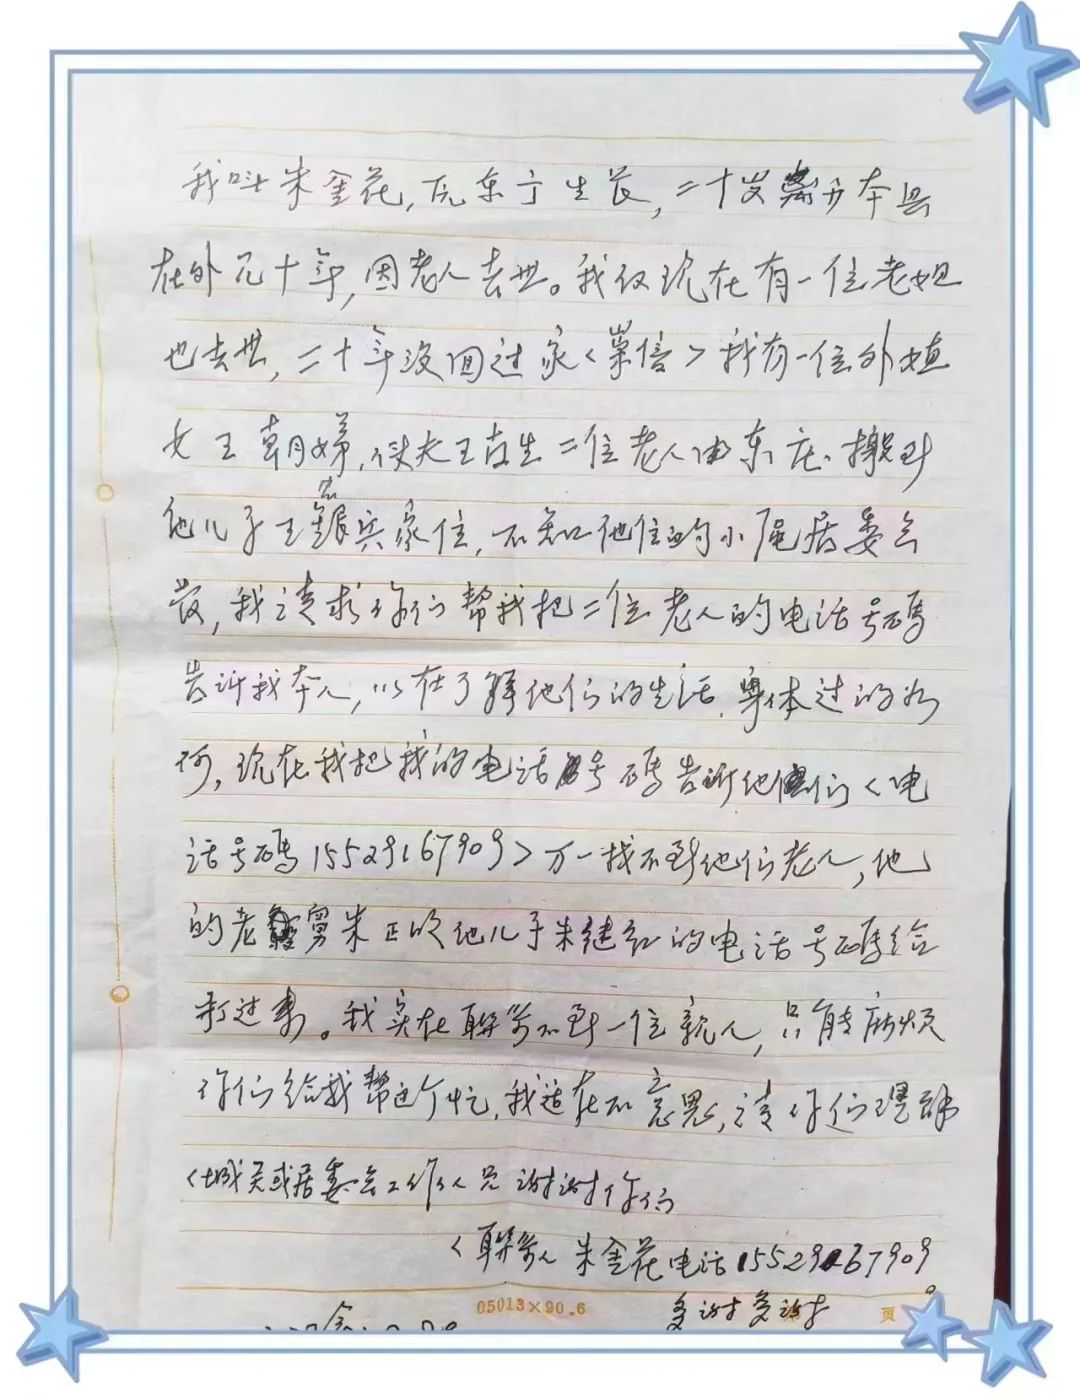 我叫朱金花,原东丁生长,二十岁离开本县
在外几十年,因老人去世。我仅现在有一位老姐
也去世,二十年没回过家<崇信>我有一位外甥
女王朝娣,丈夫王吉生二位老人由东庄搬到
他儿子王银兵家住,不知他住的小区居委会
我请求你们帮我把二位老人的电话号碼
告诉我本人,以在了解他们的生活.身体过的如
何,现在我把我的电话号碼告诉他们<电
话号碼15529167909>万一找不到他们老人,他
的老舅朱正的他儿子朱继红的电话号碼给
打过来。我实在联系不到一位亲人,只能麻烦
你们给我帮这个忙,我实在不意思,请你们理解
<城关或居委会工作人员谢谢你们
<联系人 朱金花电话15529167909
多谢多谢
05013×90.6
页